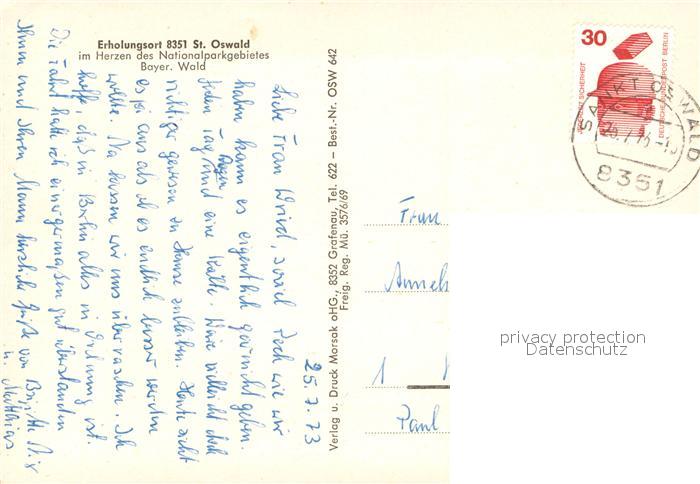 Erholungsort 8351 St. Oswald
im Herzen des Nationalparkgebietes
Bayer. Wald
25.7.73
Liebe Frau Wrird, soviel Pech wie wir
haben kann es eigentlich gar nicht geben.
Jeden Tag Regen und eine Kälte. Wäre vielleicht doch
richtiger gewesen zu Hause zu bleiben. Heute sieht
es so aus als ob es endlich besser werden
wollte. Na lassen wir uns überraschen. Ich
hoffe, daß in Berlin alles in Ordnung ist.
Die Fahrt hatte ich einigermaßen gut überstanden
Ihnen und Ihrem Mann herzliche Grüße von Brigitte
u. Matthias
Verlag u. Druck Morsak oHG., 8352 Grafenau, Tel. 622 – Best.-Nr. OSW 642
Freig. Reg. Mü. 3576/69
30
JEDERZEIT SICHERHEIT
DEUTSCHE BUNDESPOST BERLIN
SANKT OSWALD
8351
Frau
Annel
1
Paul
privacy protection
Datenschutz